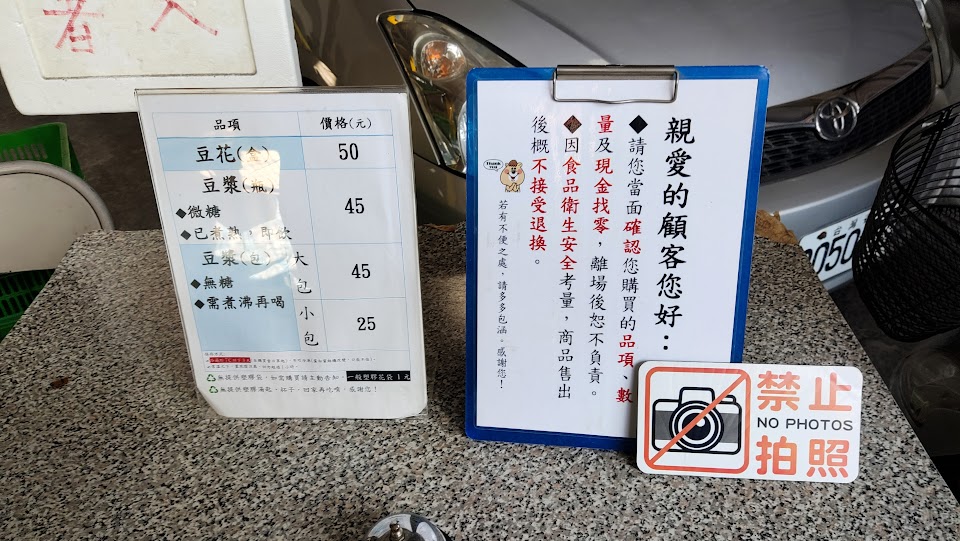 著人
品項 價格(元)
豆花(盒) 50
豆漿(瓶) 45
◆微糖
◆已煮熟，即飲
豆漿(包) 大包 45
◆無糖
◆需煮沸再喝
小包 25
♻無提供塑膠袋，如需購買請主動告知，一般塑膠花袋1元
親愛的顧客您好：
◆請您當面確認您購買的品項、數
量及現金找零，離場後恕不負責。
◆因食品衛生安全考量，商品售出
後概不接受退換。
若有不便之處，請多多包涵。感謝您！
禁止
NO PHOTOS
拍照